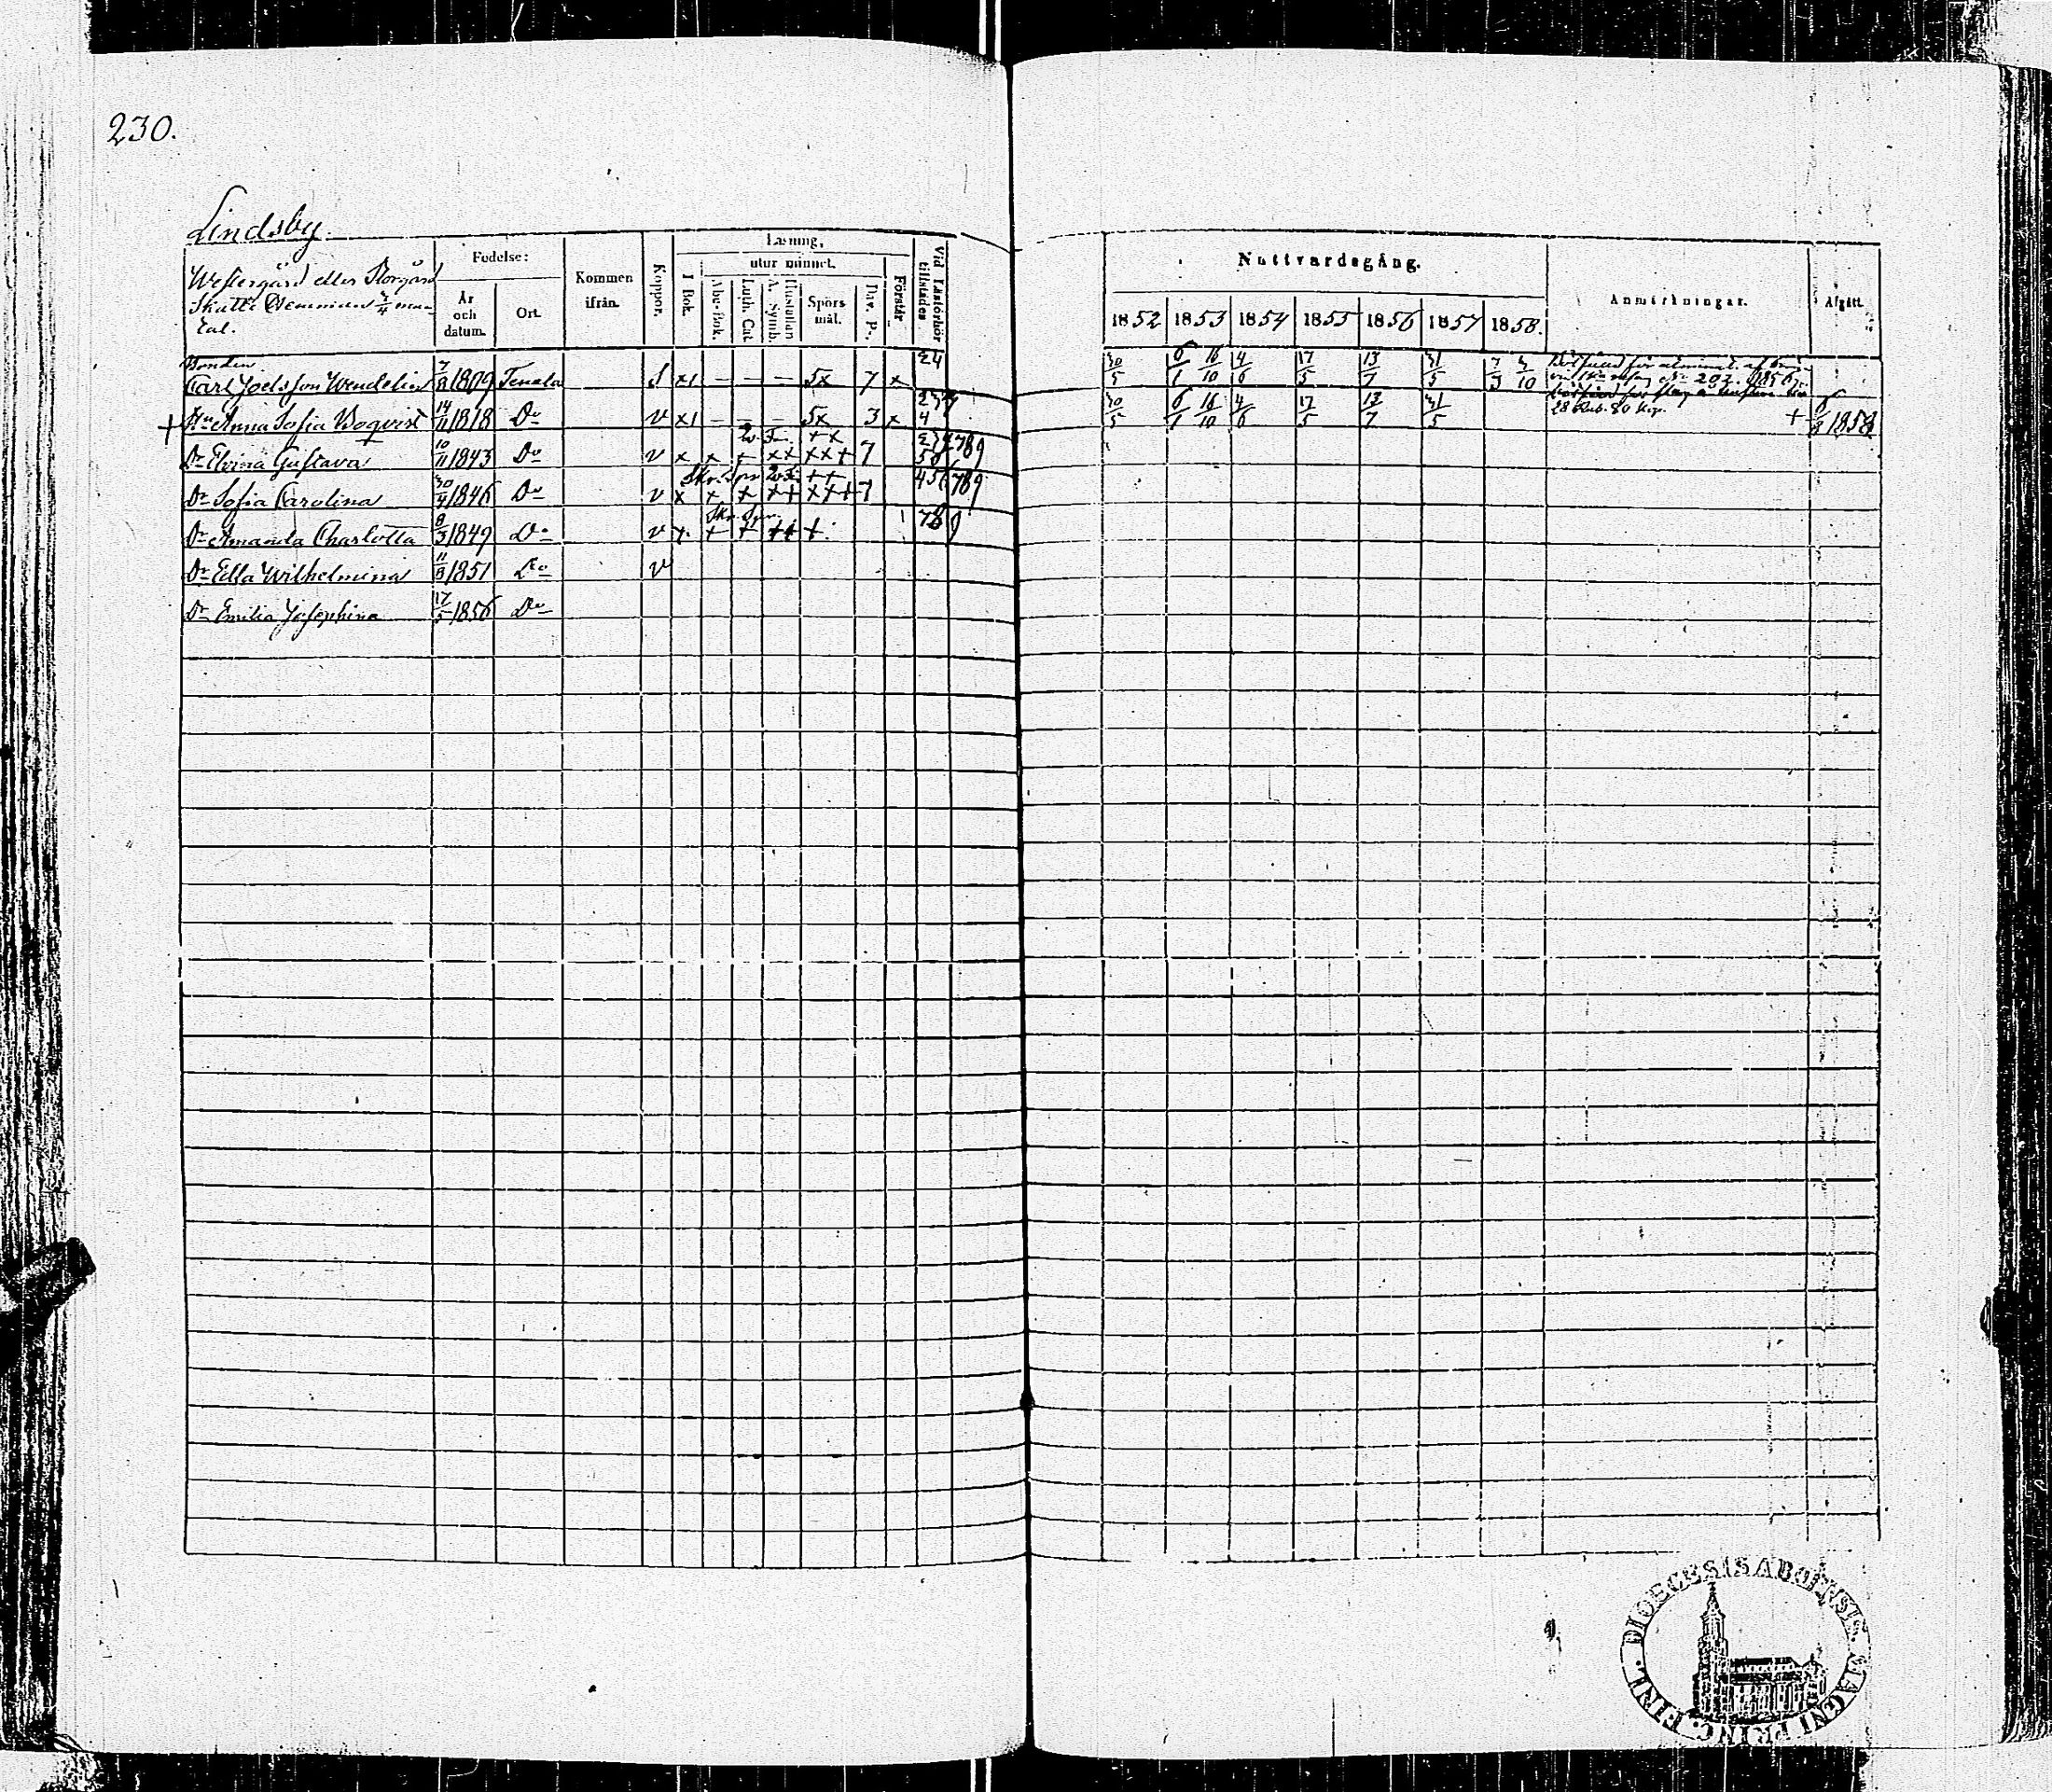 230.
Lindsby.
Westergård eller Storgård
Skatte Hemman 3/4 man-
tal.
Födelse:
År och datum.
Ort.
Kommen ifrån.
Koppor.
Läsning,
utur minnet.
I Bok.
Abc-Bok.
Luth. Cat.
Hustaflan A. Symb.
Spörs mål.
Dav. P.
Förstår
Vid Läsförhör tillstädes
Nattvardsgång.
1852 1853 1854 1855 1856 1857 1858.
Anmärkningar.
Afgått.
Bonden
Carl Joelsson Wendelin 7/8 1809 Tenala S x1 — — — 5x 7 x 24 30/5 6/1 16/10 4/6 17/5 13/7 31/5 7/3 3/10
+ Hu Anna Sofia Boqvist 14/11 1818 Do v x1 — — — 5x 3 x 4 30/5 6/1 16/10 4/6 17/5 13/7 31/5 28 Rub. 80 kop. + 1858
Dr Elvina Gustava 10/11 1843 Do v x x + xx xx+ 7 789
Dr Sofia Carolina 30/4 1846 Do v x x + x+ xx+ 7 456 789
Dr Amanda Charlotta 8/3 1849 Do v + + + ++ + 789
Dr Edla Wilhelmina 11/8 1851 Do v
Dr Emilia Josephina 17/5 1856 Do
DIOECESIS ABOENSIS. MAGNI PRINC. FINL.